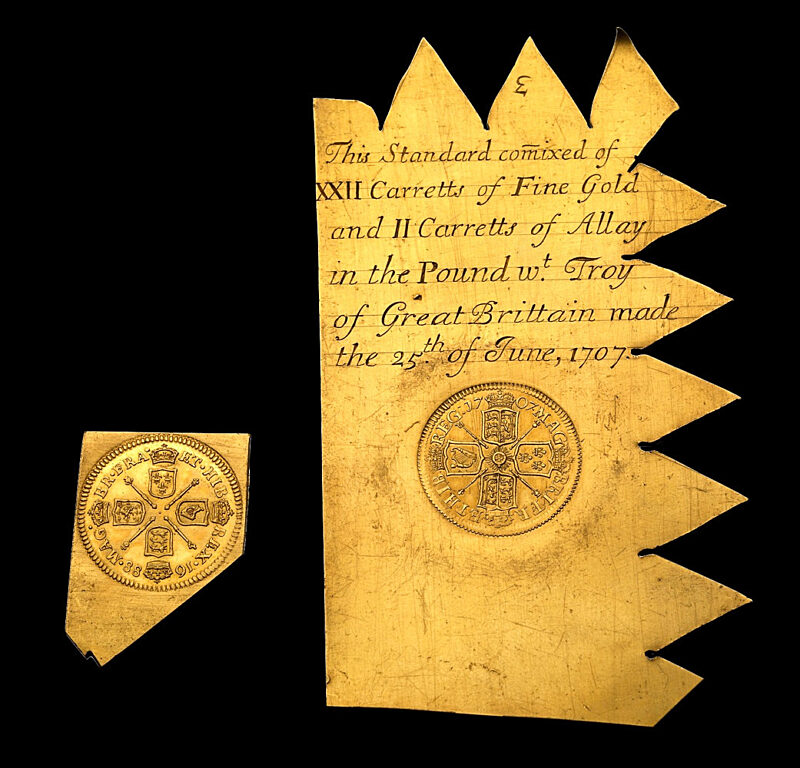 3
This Standard com̄ixed of
XXII Carretts of Fine Gold
and II Carretts of Allay
in the Pound wt. Troy
of Great Brittain made
the 25th. of June, 1707.
REG·17 07·MAG
BR·FRA ET·HIB REX·16 88·MAG